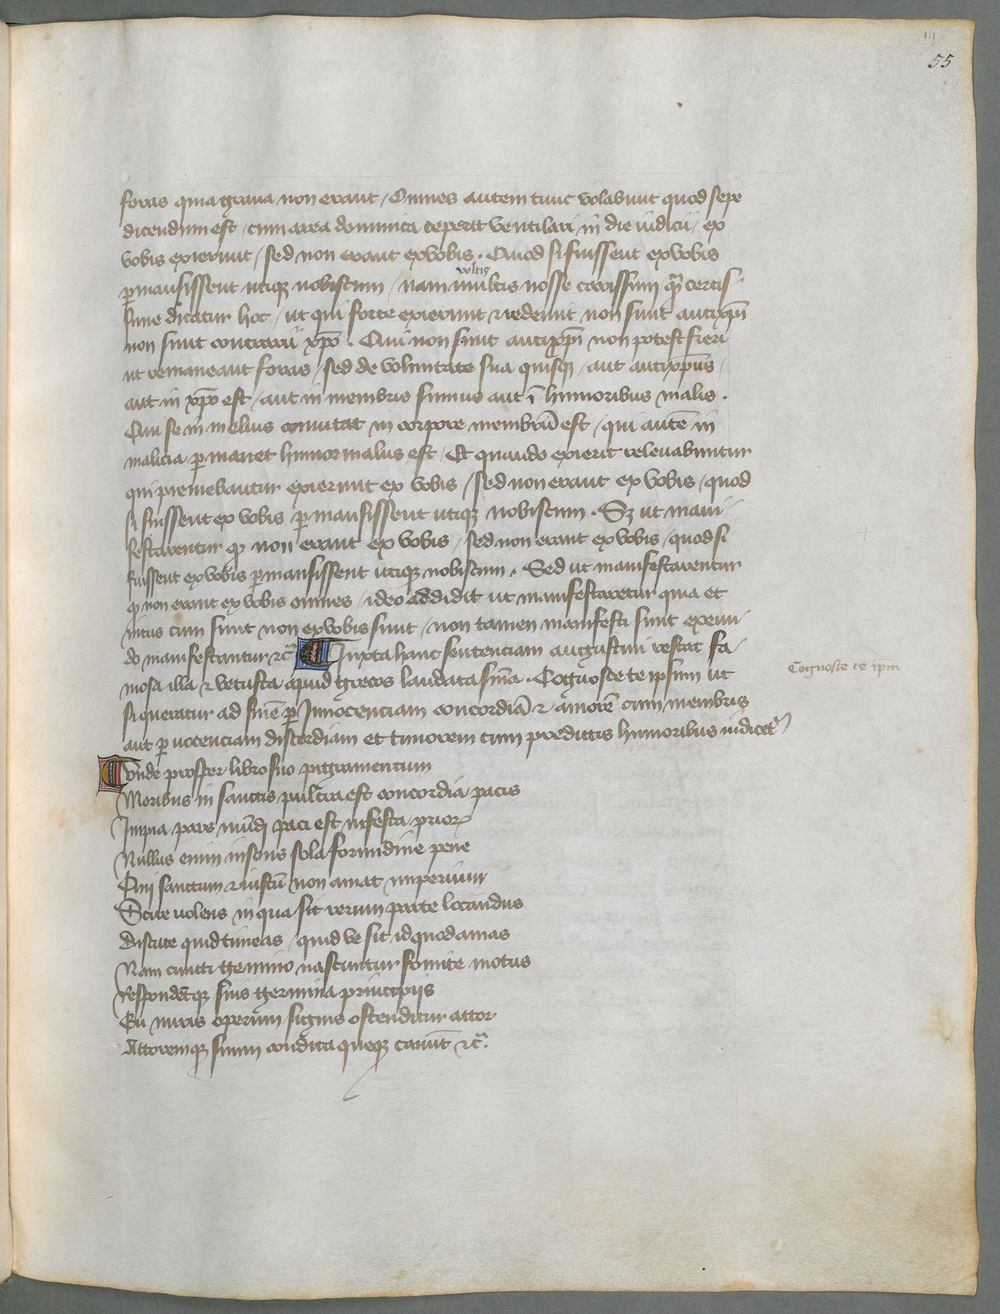 55
foras quia grana non erant / Omnes autem tunc volabunt quod sepe
dicendum est / cum area dominica ceperit ventilari in die iudicii / ex
vobis exierunt / sed non erant ex vobis . Quod si fuissent ex vobis
ꝑmansissent utiqꝫ nobiscum / nam multis nosse carissimi qm̄ certisſi
voltis
sime dicatur hoc / ut qui forte exierunt et redeunt non sunt antixp̄i
non sunt contrarii xp̄o . Qui non sunt antixp̄i non potest fieri
ut remaneant foras / sed de voluntate sua quisqꝫ / aut antixp̄us /
aut in xp̄o est / aut in membris sumus aut ī humoribus malis .
Qui se in melius comutat in corpore membrū est / qui autē in
malicia ꝑmanet humor malus est / Et quando exierit relevabuntur
qui premebantur exierunt ex vobis / sed non erant ex vobis / quod
si fuissent ex vobis ꝑmansissent utiqꝫ nobiscum . Sꝫ ut mani
festarentur qꝫ non erant ex vobis / sed non erant ex vobis / quod si
fuissent ex vobis ꝑmansissent utiqꝫ nobiscum . Sed ut manifestarentur
qꝫ non erant ex vobis omnes / ideo addidit ut manifestaretur quia et
intus cum sunt non ex vobis sunt / non tamen manifesti sunt exeun
do manifestantur etc̄ Iuxta hanc sentenciam augustini restat fa
mosa illa et vetusta apud grecos laudata sn̄ia . Cognosce te ipsum ut
Cognosce te ipm
si queratur ad finē ꝑ Innocenciam concordiā et amorē cum membris
aut ꝑ nocenciam discordiam et timorem cum predictis humoribus iudicet᷑
Unde prosper libro suo pigramentum
Moribus in sanctis pulcra est concordia pacis
Impia pars mūdi paci est infesta priorꝫ
Nullus enim insons sola formidine pene
Qui sanctum et iustū non amat imperium
Scire volens in qua sit rerum parte locandus
Discute quid timeas / quid ve sit id quod amas
Nam cuncti gemino nascuntur fomite motus
respondētqꝫ suis germina principiis
En miris operum signis ostenditur attor
Attoremqꝫ suum condita queqꝫ canūt etc̄.